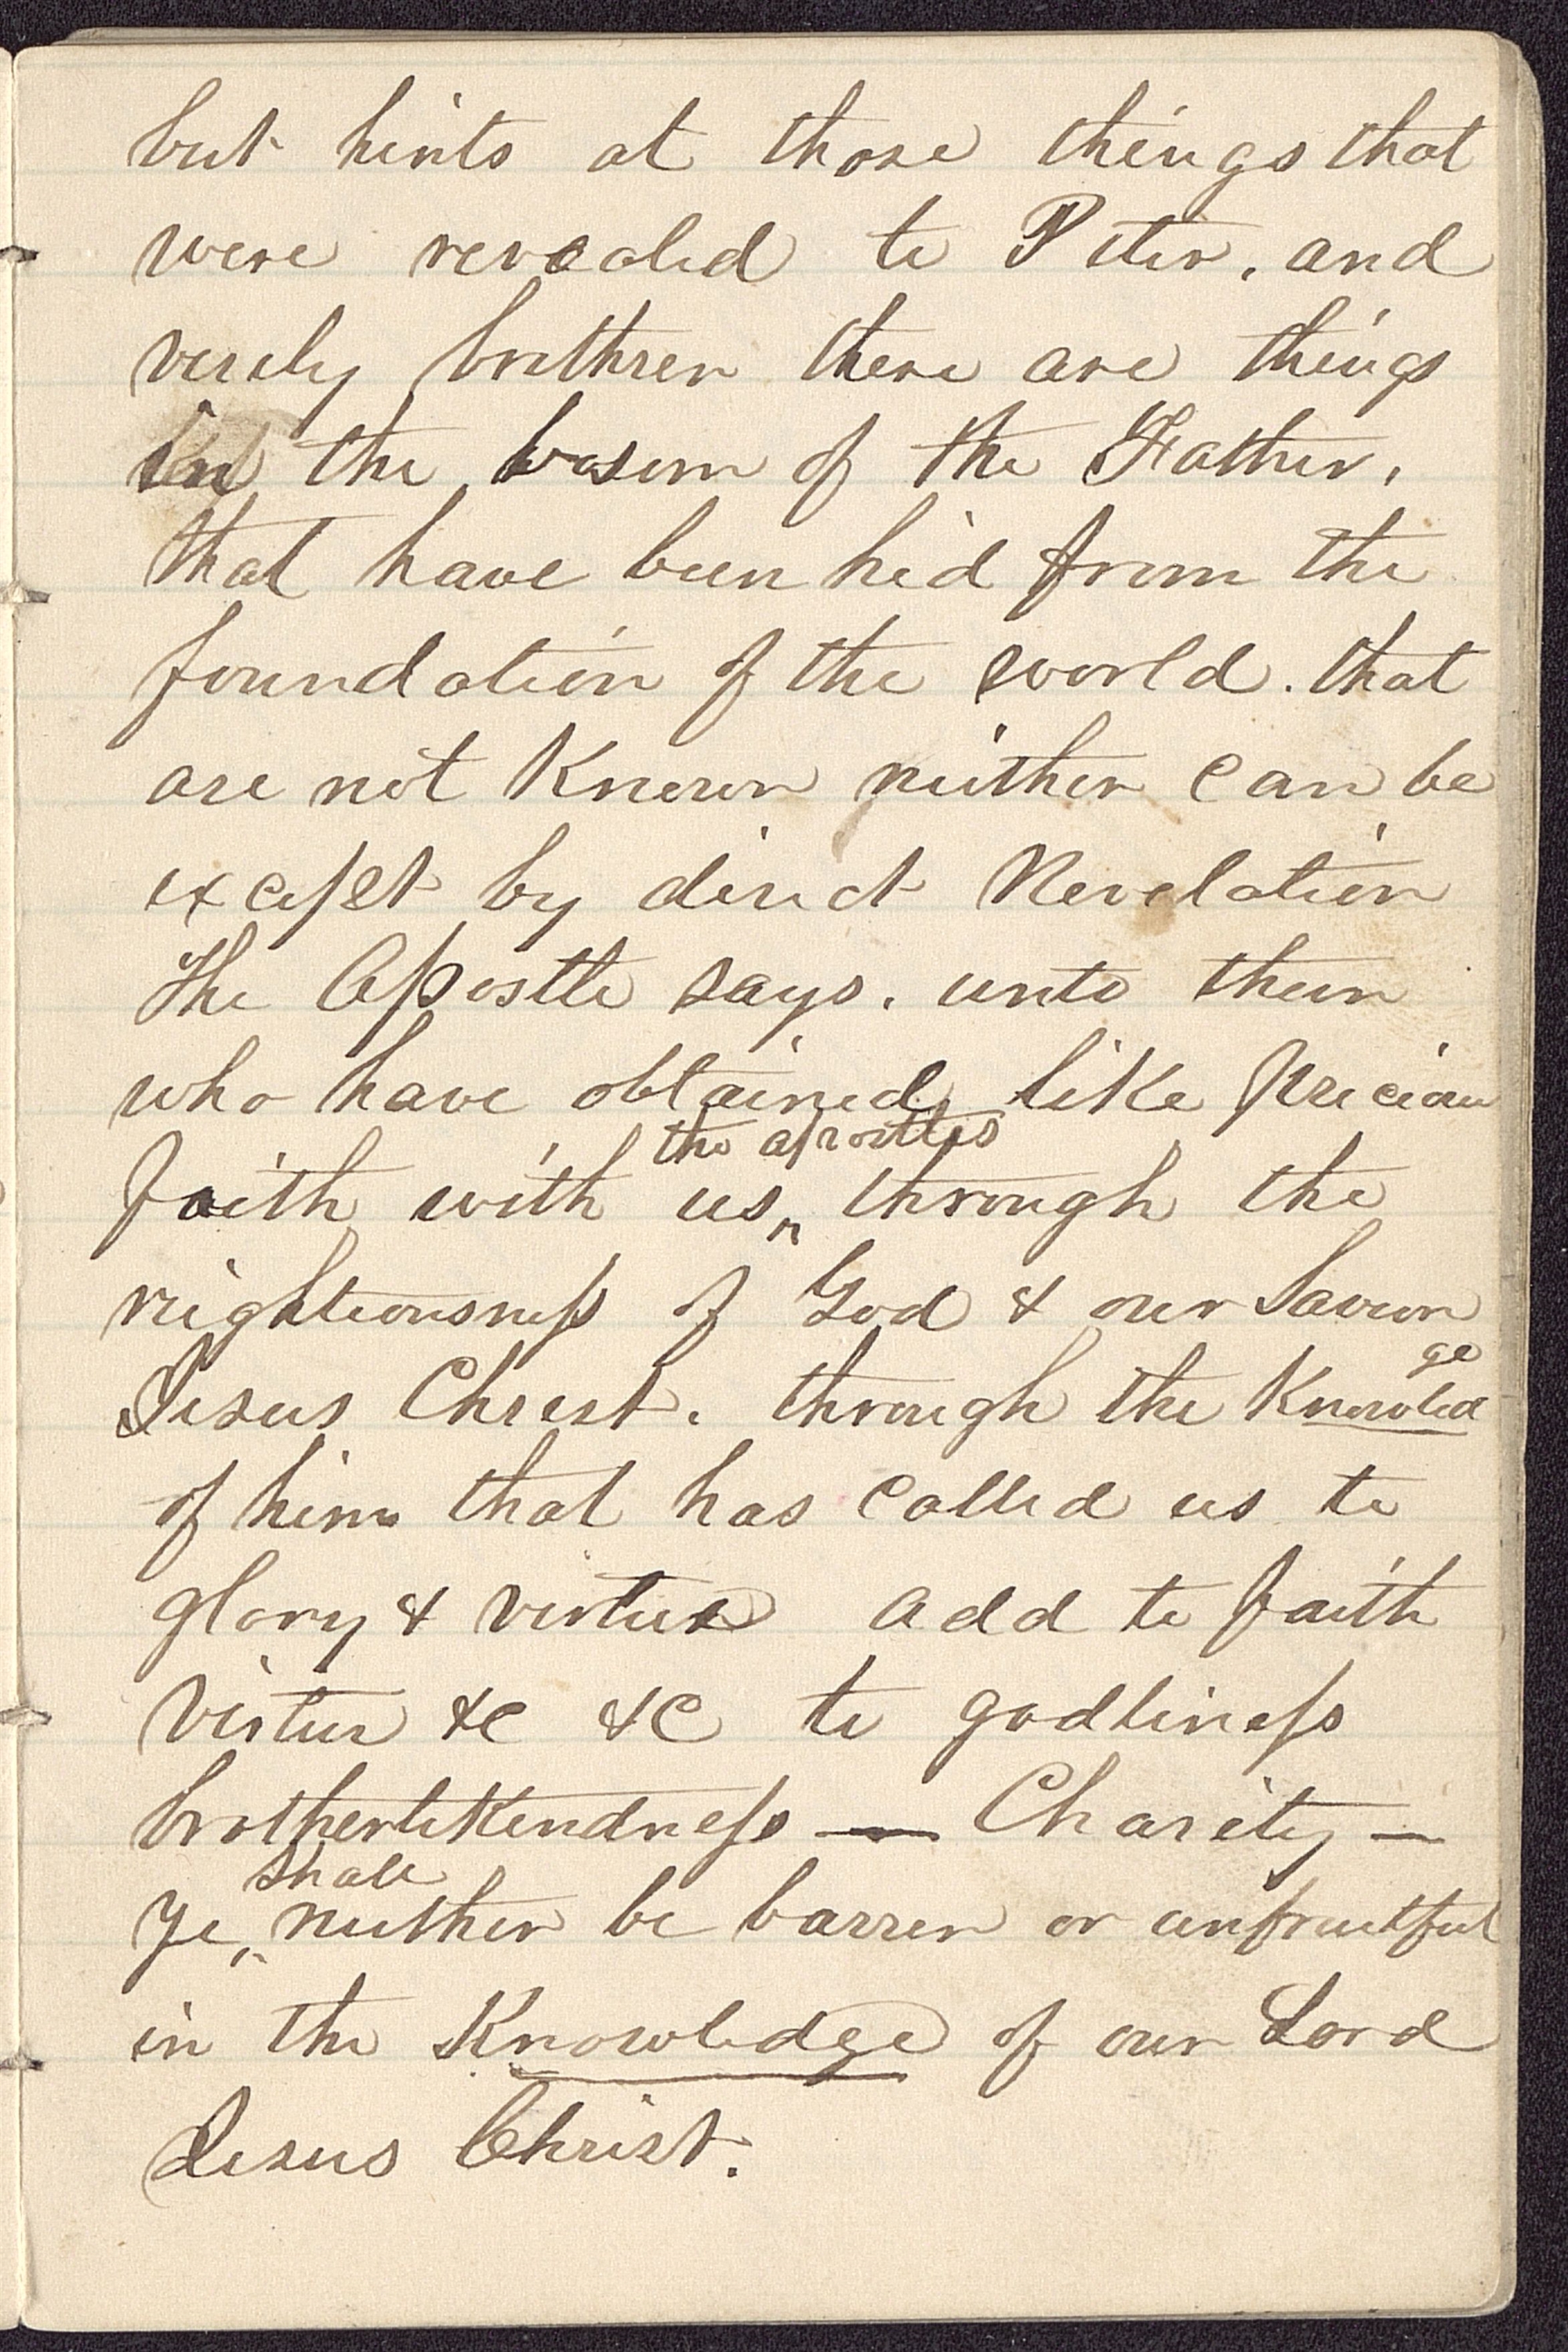 but hints at those things that
were revealed to Peter, and
verily brethren there are things
in the bosom of the Father,
that have been hid from the
foundation of the world. that
are not Known neither can be
except by direct Revelation
The Apostle says. unto them
who have obtained like precious
the apostles
faith with us through the
reighteousness of God & our Saviour
ge
Jesus Christ. through the Knowled
of him that has called us to
glory & virtue add to faith
virtue &c &c to godliness
brotherlikindness — Charity —
shall
Ye neither be barren or unfruitful
in the Knowledge of our Lord
Jesus Christ.